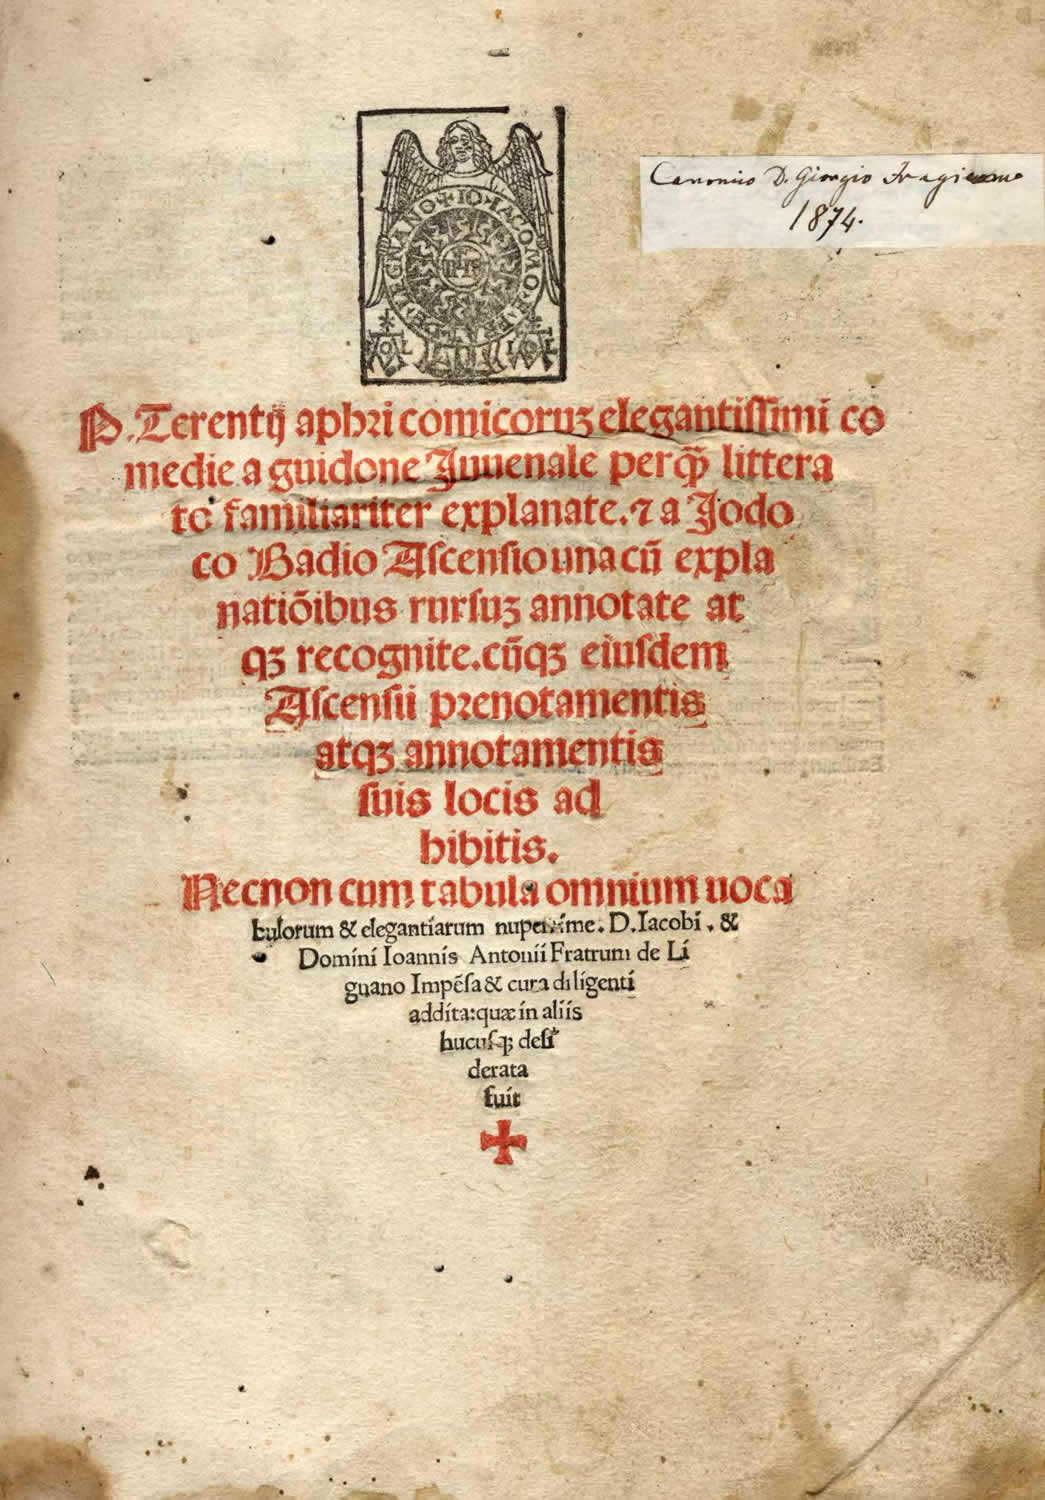 IO IACOMO E FR DE LEGNANO
IHS
Canonico D. Giorgio
1874.
P. Terentij aphri comicoruꝫ elegantissimi co
medie a guidone Juuenale perqͫ littera
to familiariter explanate. ⁊ a Jodo
co Badio Ascensio una cū expla
natiōibus rursuꝫ annotate at
qꝫ recognite. cūqꝫ eiusdem
Ascensii prenotamentis
atqꝫ annotamentis
suis locis ad
hibitis.
Necnon cum tabula omnium uoca
bulorum & elegantiarum nuperrime. D. Iacobi. &
Domini Ioannis Antonii Fratrum de Li
gnano Impēsa & cura diligenti
addita: quæ in aliis
hucusqꝫ desi
derata
fuit